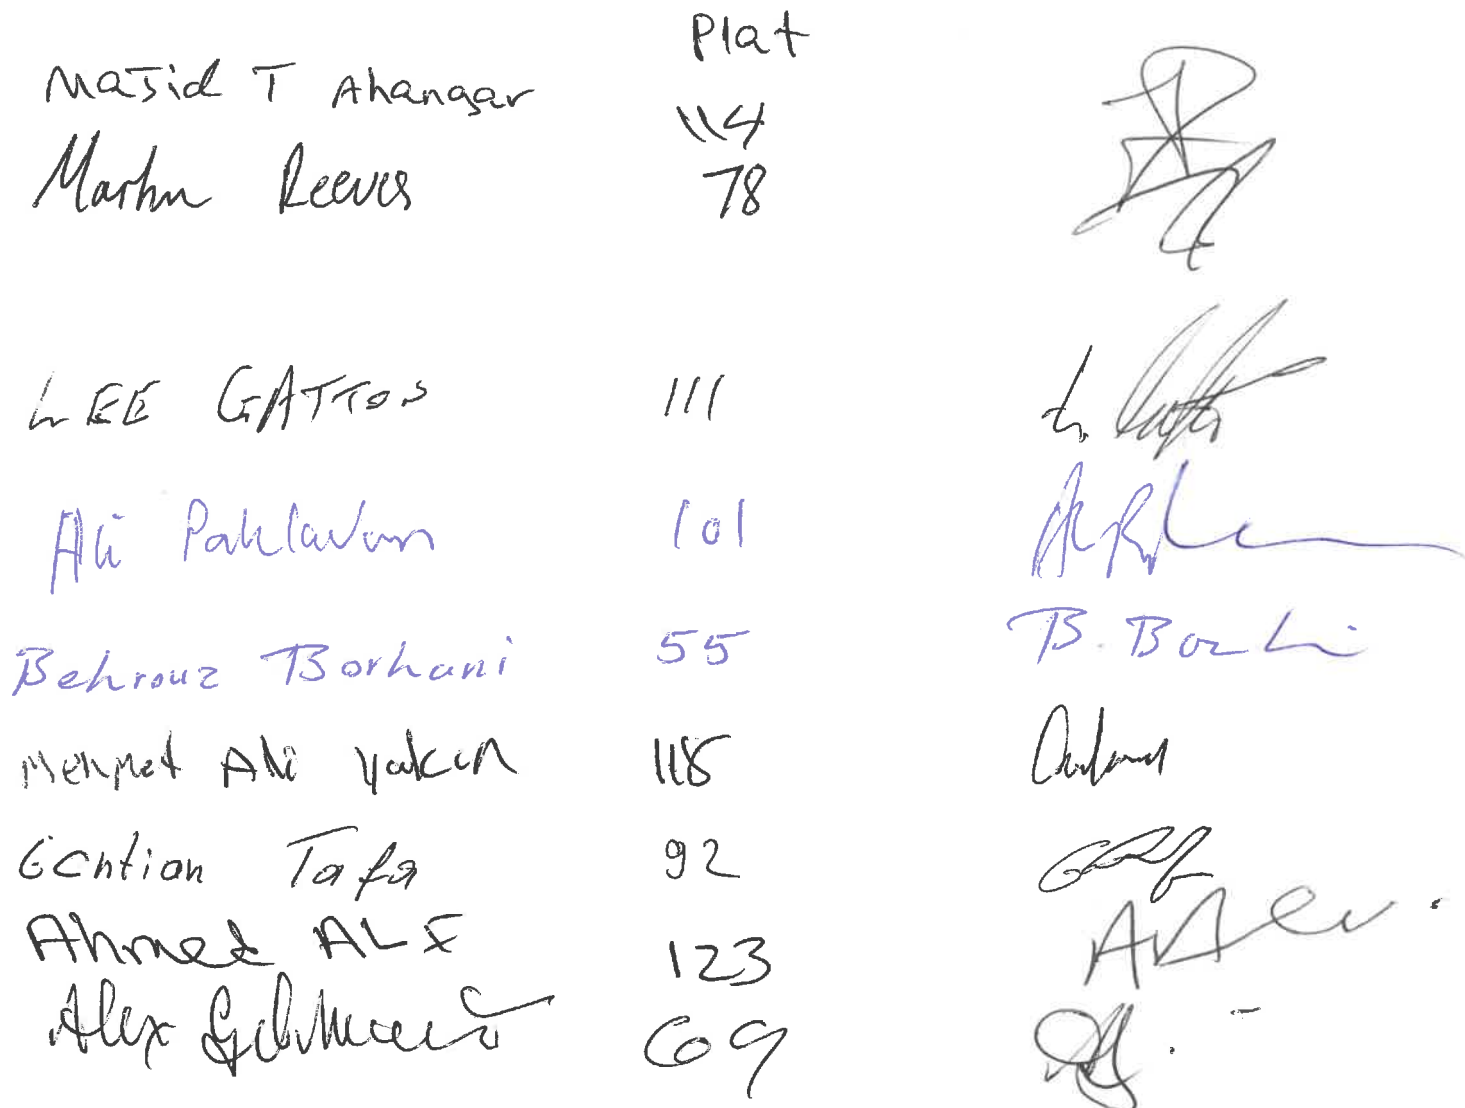 Plat
Majid T Ahangar 114
Martin Reeves 78
LEE GATTOS 111
Ali Pahlavan 101
Behrouz Borhani 55 B. Borhani
Mehmet Ali yakin 118
Gentian Tafa 92
Ahmed ALI 123
Alex 69